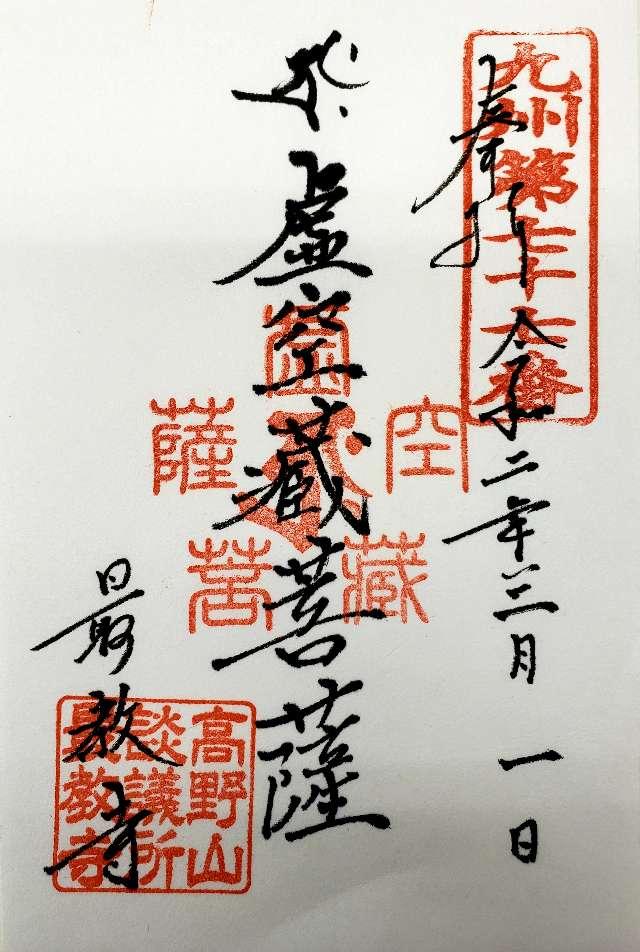 九州第七十七番
奉拝 令和二年三月一日
虚空藏菩薩
虚空藏菩薩
最教寺
高野山
談議所
最教寺